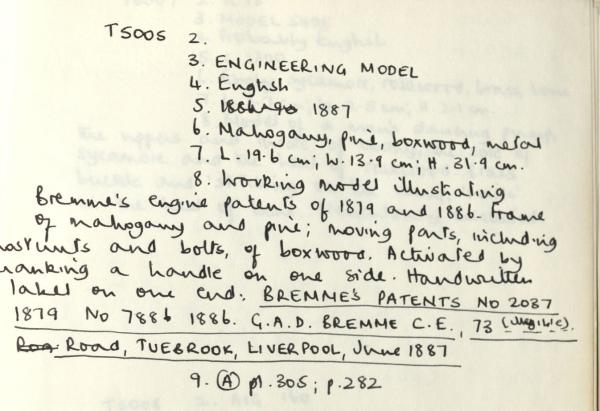 TS005 2.
3. ENGINEERING MODEL
4. English
5. 1887
6. Mahogany, pine, boxwood, metal
7. L. 19.6 cm; W. 13.9 cm; H. 31.9 cm.
8. Working model illustrating
Bremme's engine patents of 1879 and 1886. Frame
of mahogany and pine; moving parts, including
and bolts, of boxwood. Activated by
a handle on one side. Handwritten
label on one end: BREMME'S PATENTS No 2037
1879 No 7886 1886. G.A.D. BREMME C.E., 73 (illegible).
Road, TUEBROOK, LIVERPOOL, June 1887
9. (A) pl. 305; p. 282